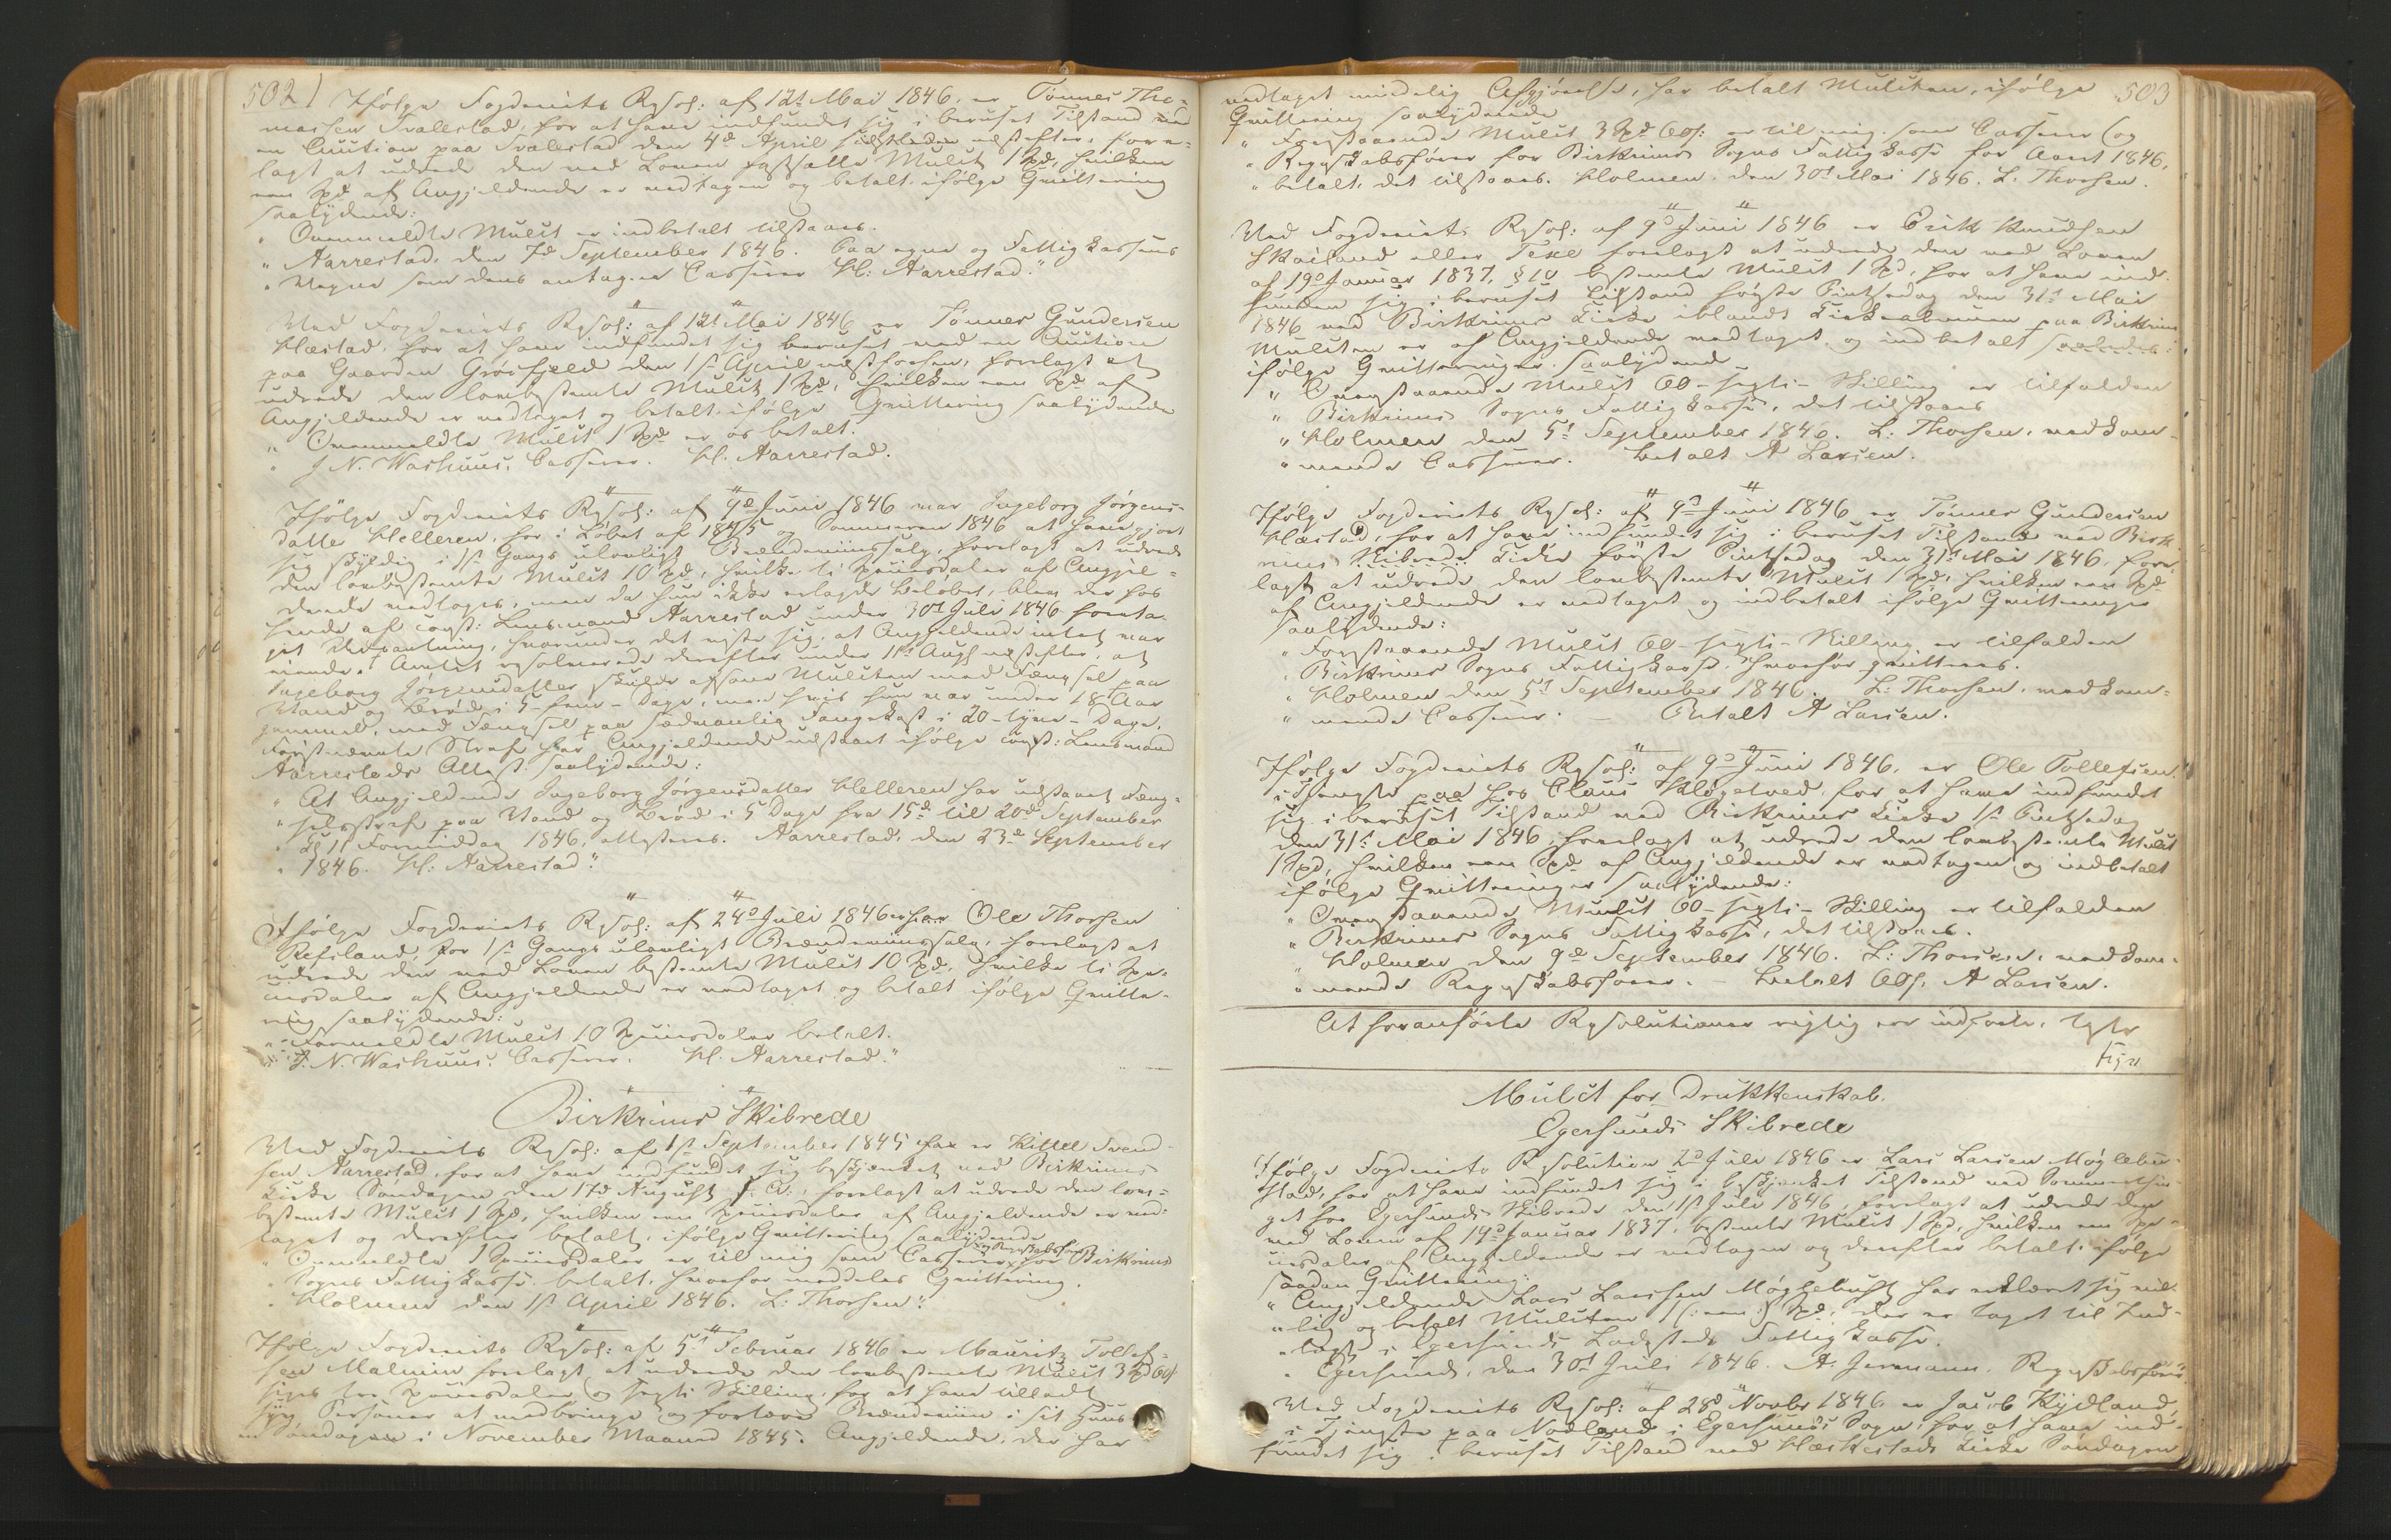 502
Ifölge Fogderiets Resol: af 12t Mai 1846. er Tönnes Tho=
massen Svalestad, for at have indfundet sig i beruset Tilstand ved
en Auction paa Svalestad den 4de April næstefter, fore=
lagt at udrede den ved Loven fastsatte Mulct 1 Spd, hvilken
een Spd af Angjeldende er vedtagen og betalt ifölge Qvittering
saalydende:
" Ovenmeldte Mulct er indbetalt tilstaaes.
" Aarrestad, den 7de September 1846. Paa egne og Fattigkassens
" Vegne som dens antagne Casserer Hl: Aarrestad."
Ved Fogderiets Resol: af 12t Mai 1846 er Tönnes Gundersen
Hæstad, for at have indfundet sig beruset ved en Auction
paa Gaarden Grösfjeld den 1ste April næstforhen, forelagt at
udrede den lovbestemte Mulct 1 Spd, hvilken een Spd af
Angjeldende er vedtaget og betalt ifölge Qvittering saalydende
" Ovenmeldte Mulct 1 Spd er os betalt.
" J. N. Washuus, Casserer. Hl. Aarrestad.
Ifölge Fogderiets Resol: af 9de Juni 1846 var Ingeborg Jörgens=
datter Helleren, for i Löbet af 1845 og Sommeren 1846 at have gjort
sig skyldig i 1ste Gangs ulovligt Brændeviinssalg, forelagt at udrede
den lovbestemte Mulct 10 Spd, hvilke ti Speciesdaler af Angjel=
dende vedtoges, men da hun ikke erlagde Belöbet, blev der hos
hende af const: Lensmand Aarrestad under 30te Juli 1846 foreta=
get Udpantning, hvorunder det viste sig, at Angjeldende intet var
eiende. Amtet resolverede derefter under 11te Augst næstefter, at
Ingeborg Jörgensdatter skulde afsone Mulcten med Fængsel paa
Vand og Bröd i 5 - fem - Dage, men hvis hun var under 18 Aar
gammel, med Fængsel paa sædvanlig Fangekost i 20 - tyve - Dage.
Förstnævnte Straf har Angjeldende udstaaet ifölge const: Lensmand
Aarrestads Attest saalydende:
" At Angjeldende Ingeborg Jörgensdatter Helleren har udstaaet Fæng=
" selsstraf paa Vand og Bröd i 5 Dage fra 15de til 20de September
" Kl 11 Formiddag 1846, attesteres. Aarrestad, den 23de September
" 1846. Hl: Aarrestad."
Ifölge Fogderiets Resol: af 24de Juli 1846 er Ole Thorsen
Refsland, for 1ste Gangs ulovligt Brændeviinssalg, forelagt at
udrede den ved Loven bestemte Mulct 10 Spd, hvilke ti Spe=
ciesdaler af Angjeldende er vedtaget og betalt ifölge Qvitte=
ring saalydende:
" Formeldte Mulct 10 Speciesdaler betalt.
" J. N. Washuus, Casserer. Hl. Aarrestad."
Birkrims Skibrede
Ved Fogderiets Resol: af 1ste September 1845 er Kittel Svend=
sen Aarrestad, for at have indfundet sig beskjænket ved Birkrims
Kirke Söndagen den 17de August f. A., forelagt at udrede den lov=
bestemte Mulct 1 Spd, hvilken een Speciesdaler af Angjeldende er ved=
taget og derefter betalt, ifölge Qvittering saalydende
" Ovenmeldte 1 Speciesdaler er til mig som Casserer og Regnskabsförer for Birkrims
" Sogns Fattigkasse betalt, hvorfor meddeles Qvittering.
" Holmen den 1ste April 1846. L: Thorsen."
Ifölge Fogderiets Resol: af 5te Februar 1846 er Mauritz Tollef=
sen Malmin forelagt, at udrede den lovbestemte Mulct 3 Spd 60 s
siger tre Speciesdaler og sexti Skilling, for at have tilladt
Personer at medbringe og fortære Brændeviin i sit Huus
en Söndag i November Maaned 1845. Angjeldende, der har
503
vedtaget mindelig Afgjörelse, har betalt Mulcten, ifölge
Qvittering saalydende
" Foranstaaende Mulct 3 Spd 60 s: er til mig som Casserer (og
" Regnskabsförer for Birkrims Sogns Fattigkasse for Aaret 1846,
" betalt, det tilstaaes. Holmen, den 30te Mai 1846. L. Thorsen.
Ved Fogderiets Resol: af 9de Juni 1846 er Erik Knudsen
Skailand eller Texe forelagt at udrede den ved Loven
af 19de Januar 1837, § 10 bestemte Mulct 1 Spd, for at have ind=
funden sig i beruset Tilstand förste Pintsedag den 31te Mai
1846 ved Birkrims Kirke iblandt Kirkealmuen paa Birkrim
Mulcten er af Angjeldende vedtaget og indbetalt saaledes:
ifölge Qvitteringer saalydende
" Omenstaaende Mulct 60 - sexti - Skilling er tilfalden
" Birkrims Sogns Fattigkasse, det tilstaaes
" Holmen den 5te September 1846. L: Thorsen, vedkom=
" mende Casserer. Betalt A Larsen.
Ifölge Fogderiets Resol: af 9de Juni 1846 er Tönnes Gundersen
Hæstad, for at have indfundet sig i beruset Tilstand ved Birk=
rims Skibrede Kirke förste Pintsedag den 31te Mai 1846, fore=
lagt at udrede den lovbestemte Mulct 1 Spd, hvilken een Spd
af Angjeldende er vedtaget og indbetalt ifölge Qvitteringer
saalydende:
" Foranstaaende Mulct 60 - sexti - Skilling er tilfalden
" Birkrims Sogns Fattigkasse, hvorfor qvitteres.
" Holmen den 5te September 1846. L: Thorsen, vedkom=
" mende Casserer. - Betalt A Larsen.
Ifölge Fogderiets Resol: af 9de Juni 1846, er Ole Tollefsen
i Tjeneste hos Claus Klögetvedt, for at have indfundet
sig i beruset Tilstand ved Birkrims Kirke 1ste Pintsedag
den 31te Mai 1846, forelagt at udrede den lovbestemte Mulct
1 Spd, hvilken een Spd af Angjeldende er vedtagen og indbetalt
ifölge Qvitteringer saalydende:
" Omenstaaende Mulct 60 - sexti - Skilling er tilfalden
" Birkrims Sogns Fattigkasse, det tilstaaes.
" Holmen den 9de September 1846. L: Thorsen, vedkom=
" mende Regnskabsförer. - Betalt 60 s. A Larsen.
At foranförte Resolutioner rigtig ere indförte,
Mulct for Drukkenskab.
Egersunds Skibrede
Ifölge Fogderiets Resolution 2de Juli 1846 er Lars Larsen Mögleböe=
stad, for at have indfundet sig i beskjænket Tilstand ved Sommerthin=
get for Egersunds Skibrede den 1ste Juli 1846, forelagt at udrede den
ved Loven af 19de Januar 1837 bestemte Mulct 1 Spd, hvilken een Spe=
ciesdaler af Angjeldende er vedtagen og derefter betalt, ifölge
saadan Qvittering:
" Angjeldende Lars Larsen Möglebust har erklæret sig vil=
" lig og betalt Mulcten 1 (: een :) Spd, der er taget til Ind=
" tægt i Egersunds Ladesteds Fattigkasse.
" Egersund, den 30te Juli 1846. A. Jermann. Regnskabsförer.
Ved Fogderiets Resol: af 28de Novbr 1846 er Jacob Kydland
i Tjeneste paa Nodland i Egersunds Sogn, for at have ind=
fundet sig i beruset Tilstand ved Hæskestads Kirke Söndagen